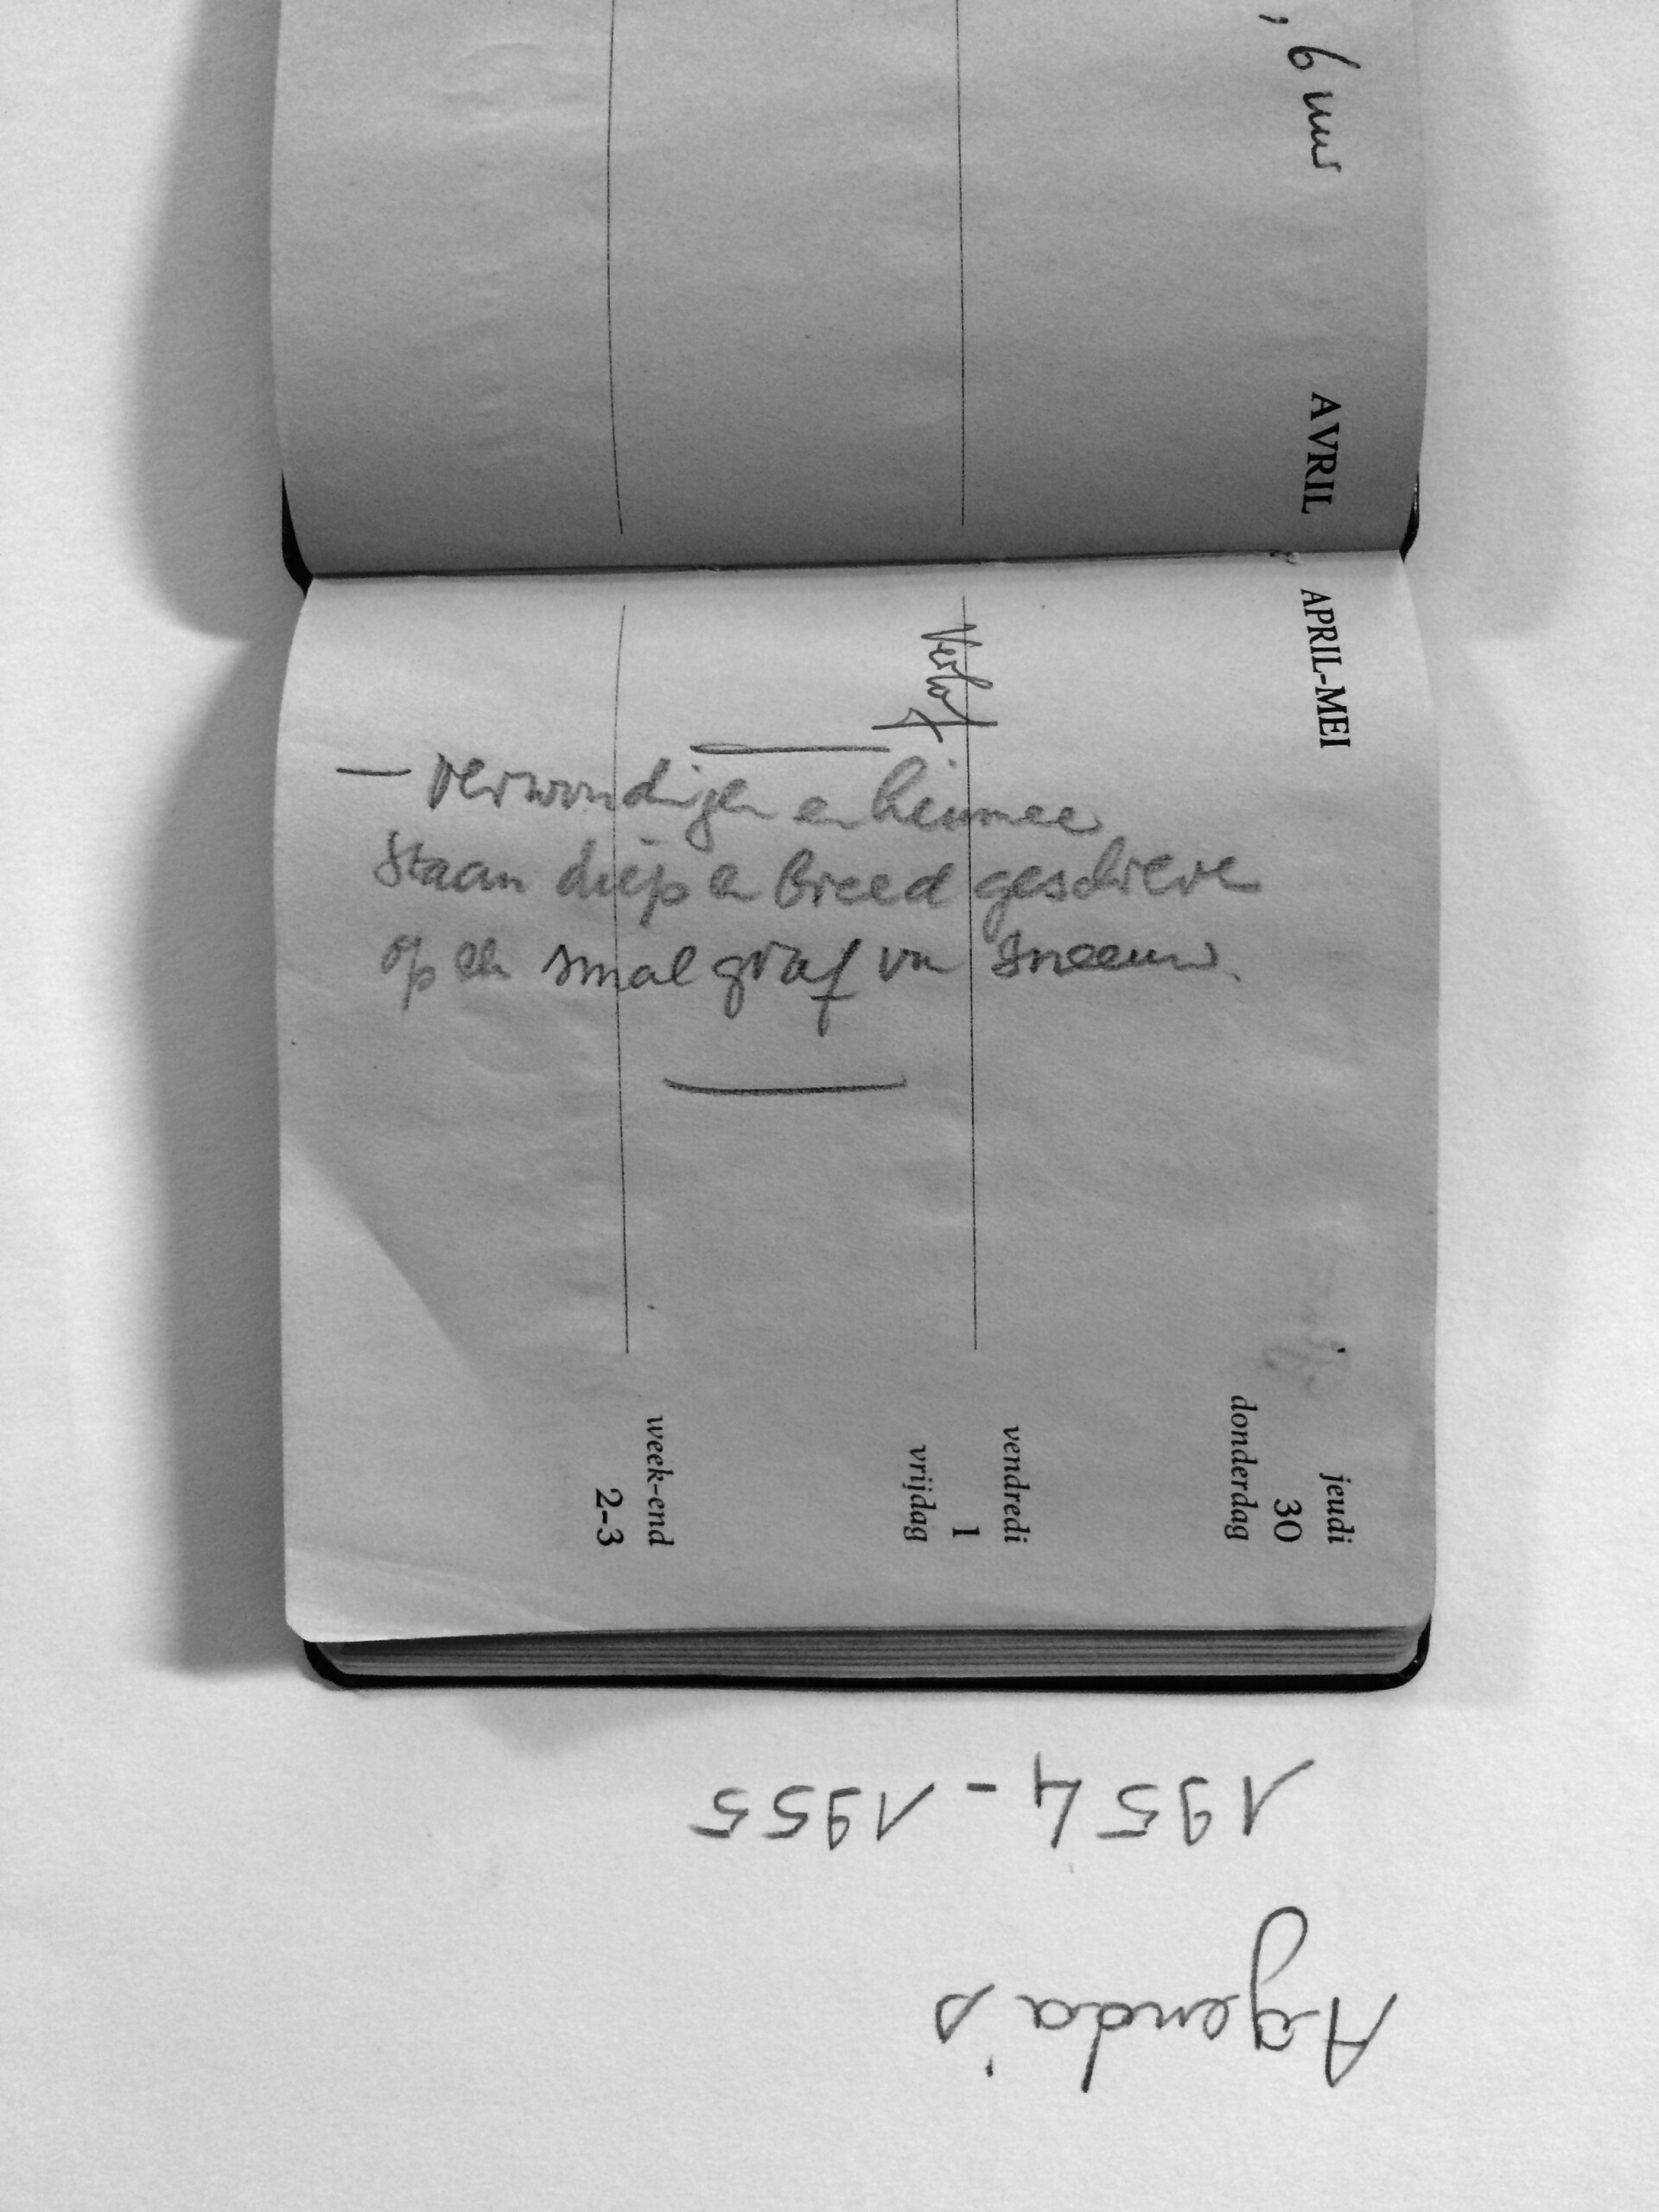 , 6 uur
AVRIL
APRIL-MEI
Verlof
— verwondingen en heimwee
staan diep en breed geschreven
op een smal graf van sneeuw.
jeudi
30
donderdag
vendredi
1
vrijdag
week-end
2-3
1954 - 1955
Agenda's